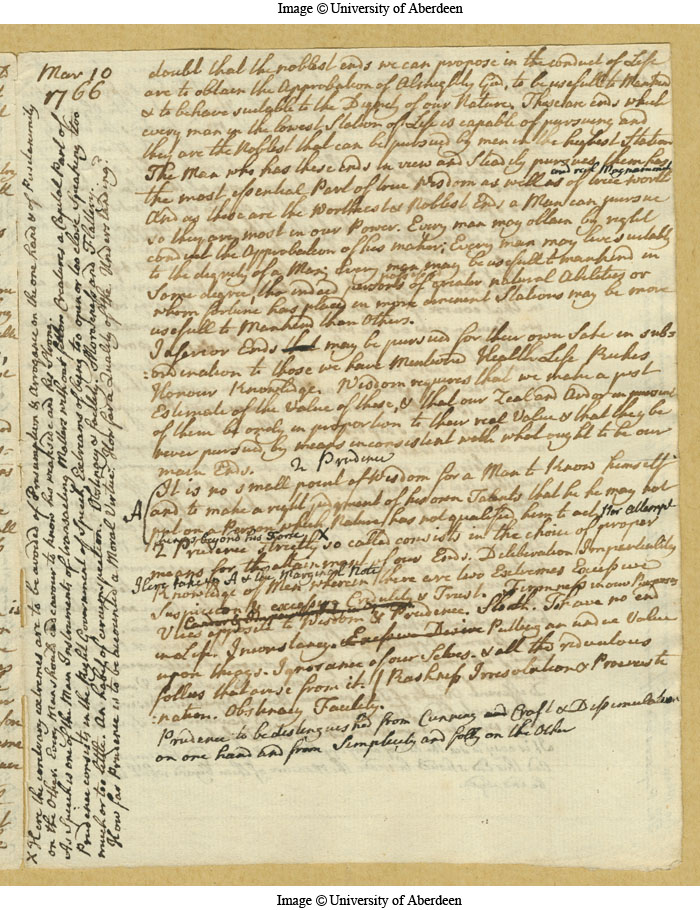 Image © University of Aberdeen
Mar 10
1766
doubt that the noblest ends we can propose in the conduct of Life
are to obtain the Approbation of Almighty God, to be usefull to Mankind
& to behave suitable to the Dignity of our Nature. These are ends which
every man in the lowest Station of Life is capable of pursuing and
they are the Noblest that can be pursued by men in the highest Station
The Man who has these Ends in view and Steadily pursues them has
and real Magnanimity
the most essential Part of true Wisdom as well as of true worth
And as these are the Worthiest & Noblest Ends a Man can pursue
so they are most in our Power. Every man may obtain by right
conduct the Approbation of his maker; Every man may live suitably
to the dignity of a Man; Every man may be usefull to mankind in
Some degree, tho indeed persons of greater natural Abilities or
whom fortune has placed in more eminent Stations may be more
usefull to Mankind than Others.
Inferior Ends that may be pursued for their own Sake in sub=
=ordination to those we have Mentioned Health Life Riches
Honour Knowledge. Wisdom requires that we make a just
Estimate of the Value of these, & that our Zeal and Ardor in pursuit
of them be onely in proportion to their real Value & that they be
never pursued by means inconsistent with what ought to be our
main Ends.
2 Prudence
A
It is no small point of Wisdom for a Man to Know himself
and to make a right judgment of his own Talents that he may not
put on a Person which Nature has not qualified him to act, Nor attempt
things beyond his Forte X
2 Prudence strictly so called consists in the choice of proper
means for the attainment of our Ends. Deliberation Impartiality
Here take in A & the Marginal Note
Knowledge of Men wherein there are two Extremes Excessive
Suspicion & excessive Credulity & Trust. Firmness in our Purposes
Vices opposite to Wisdom & Prudence. Sloth. To have no end
in Life. Inconstancy. Excessive Desire Putting an undue Value
upon things. Ignorance of our Selves. & all the rediculous
follies that arise from it. / Rashness Irresolution & Procrasti
=nation. Obstinacy Facility.
Prudence to be distinguished from Cunning and Craft & Dissimulation
on one hand and from Simplicity and folly on the Other
X Here the contrary extremes are to be avoided of Presumption & Arrogance on the one hand & of Pusillanimity
on the Other. Every Man should endeavour to know his weakside and his Strong.
As Speech is one of the Main Instruments of transacting Matters with our fellow Creatures a Capital Part of
Prudence consists in the Right Government of Speech Extreams of being too open or too close Speaking too
much or too little. An habit of circumspection. Obstinacy & facility. Moroseness and Flattery.
How far Prudence is to be accounted a Moral Virtue. How far a Quality of the Understanding.
Image © University of Aberdeen